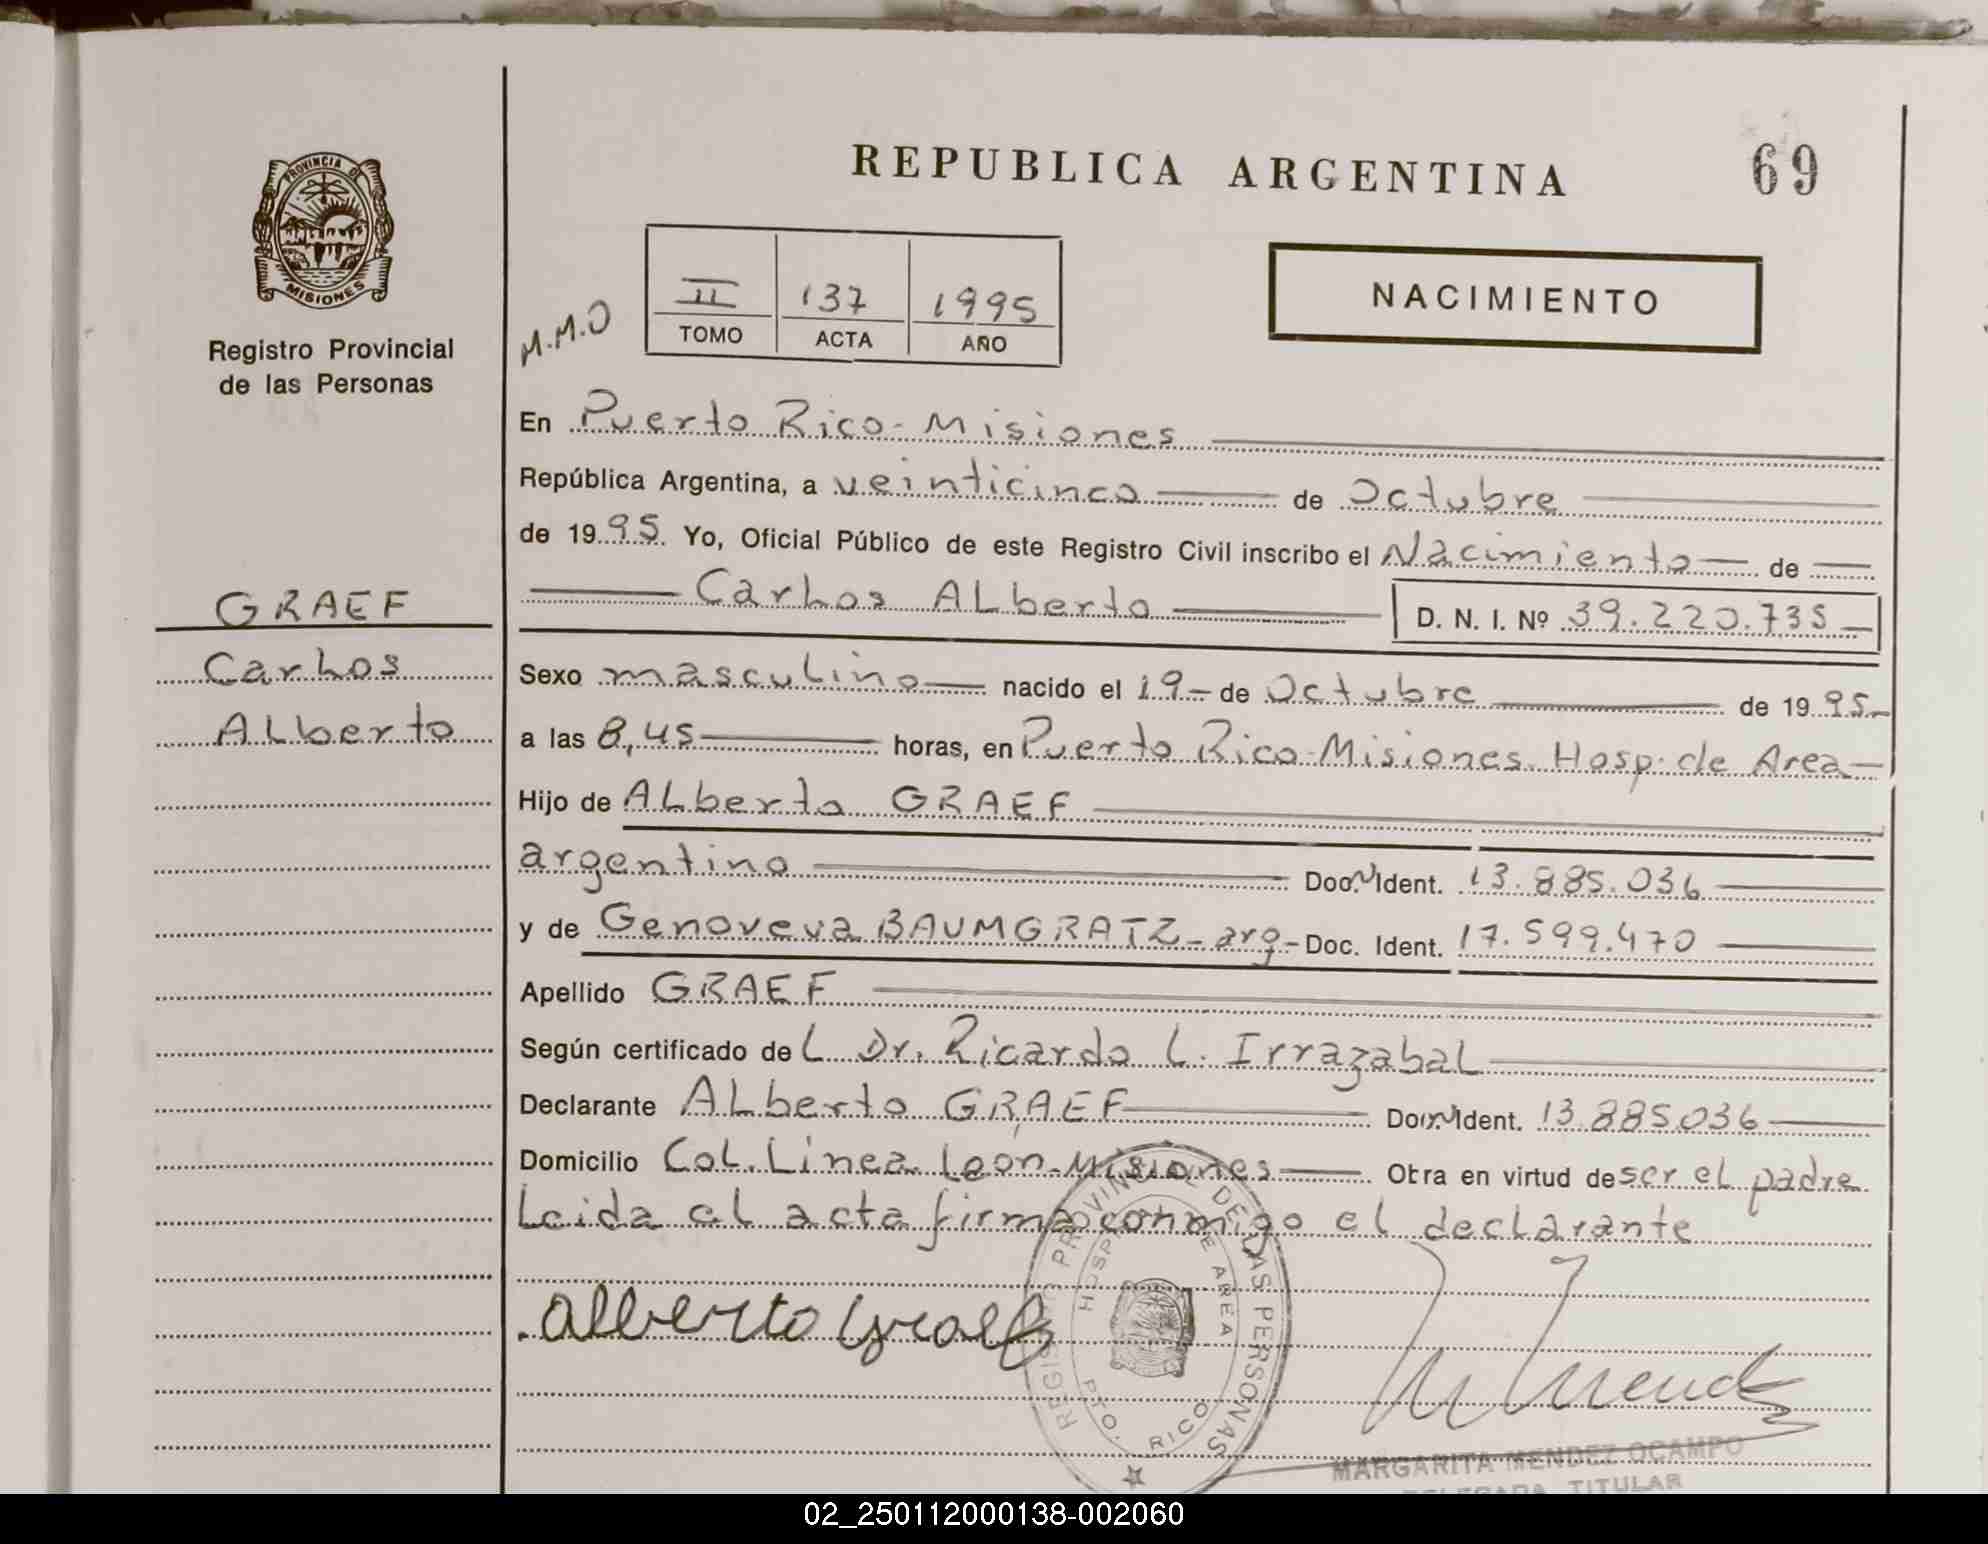 PROVINCIA DE
MISIONES
Registro Provincial
de las Personas
GRAEF
Carlos
Alberto
REPUBLICA ARGENTINA
69
M.M.O
II 137 1995
TOMO ACTA AÑO
NACIMIENTO
En Puerto Rico - Misiones
República Argentina, a veinticinco de Octubre
de 1995. Yo, Oficial Público de este Registro Civil inscribo el Nacimiento de
Carlos Alberto D. N. I. Nº 39.220.735
Sexo masculino nacido el 19 - de Octubre de 1995
a las 8,45 horas, en Puerto Rico - Misiones. Hosp. de Area
Hijo de Alberto GRAEF
argentino Doc. N Ident. 13.885.036
y de Genoveva BAUMGRATZ - arg - Doc. Ident. 17.599.470
Apellido GRAEF
Según certificado del Dr. Ricardo L. Irrazabal
Declarante Alberto GRAEF Doc. N Ident. 13.885.036
Domicilio Col. Linea León - Misiones Obra en virtud de ser el padre
Leida el acta firma conmigo el declarante
Alberto Graef
REGISTRO PROVINCIAL DE LAS PERSONAS
HOSPITAL DE AREA
PTO. RICO
M Mendez
MARGARITA MENDEZ OCAMPO
DELEGADA TITULAR
02_250112000138-002060